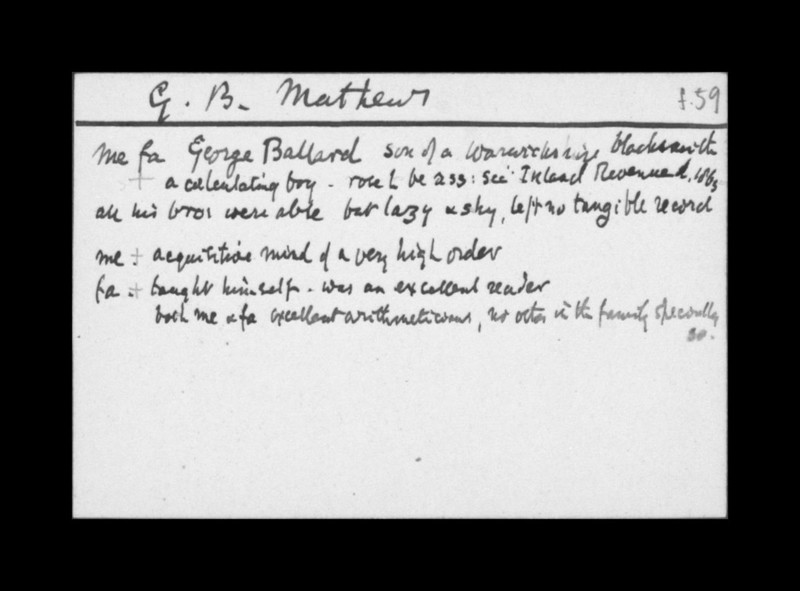 G. B. Mathews f. 59
me fa George Ballard son of a Warwickshire blacksmith
+ a calculating boy - rose to be ass: sec Inland Revenue d. 1863
all his bros were able but lazy & shy, left no tangible record
me :+ acquisitive mind of a very high order
fa :+ taught himself - was an excellent reader
both me & fa excellent arithmeticians, no other in the family specially
so.